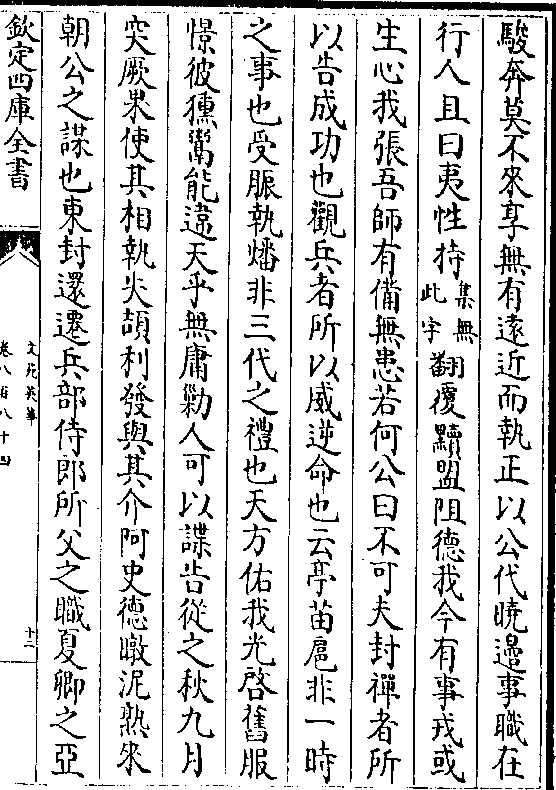 駿奔莫不來享無有遠近而執正以公代曉邉事職在
行人且曰夷性持集無此字翻覆黷盟阻德我今有事戎或
生心我張吾師有備無患若何公曰不可夫封禪者所
以告成功也觀兵者所以威逆命也云亭苗扈非一時
之事也受脤執燔非三代之禮也天方佑我光啓舊服
憬彼獯鬻能違天乎無庸勦人可以諜告從之秋九月
突厥果使其相執失頡利發與其介阿史德暾泥熟來
朝公之謀也東封還遷兵部侍郎所父之職夏卿之亞
欽定四庫全書
文苑英華
卷八百八十四
十二